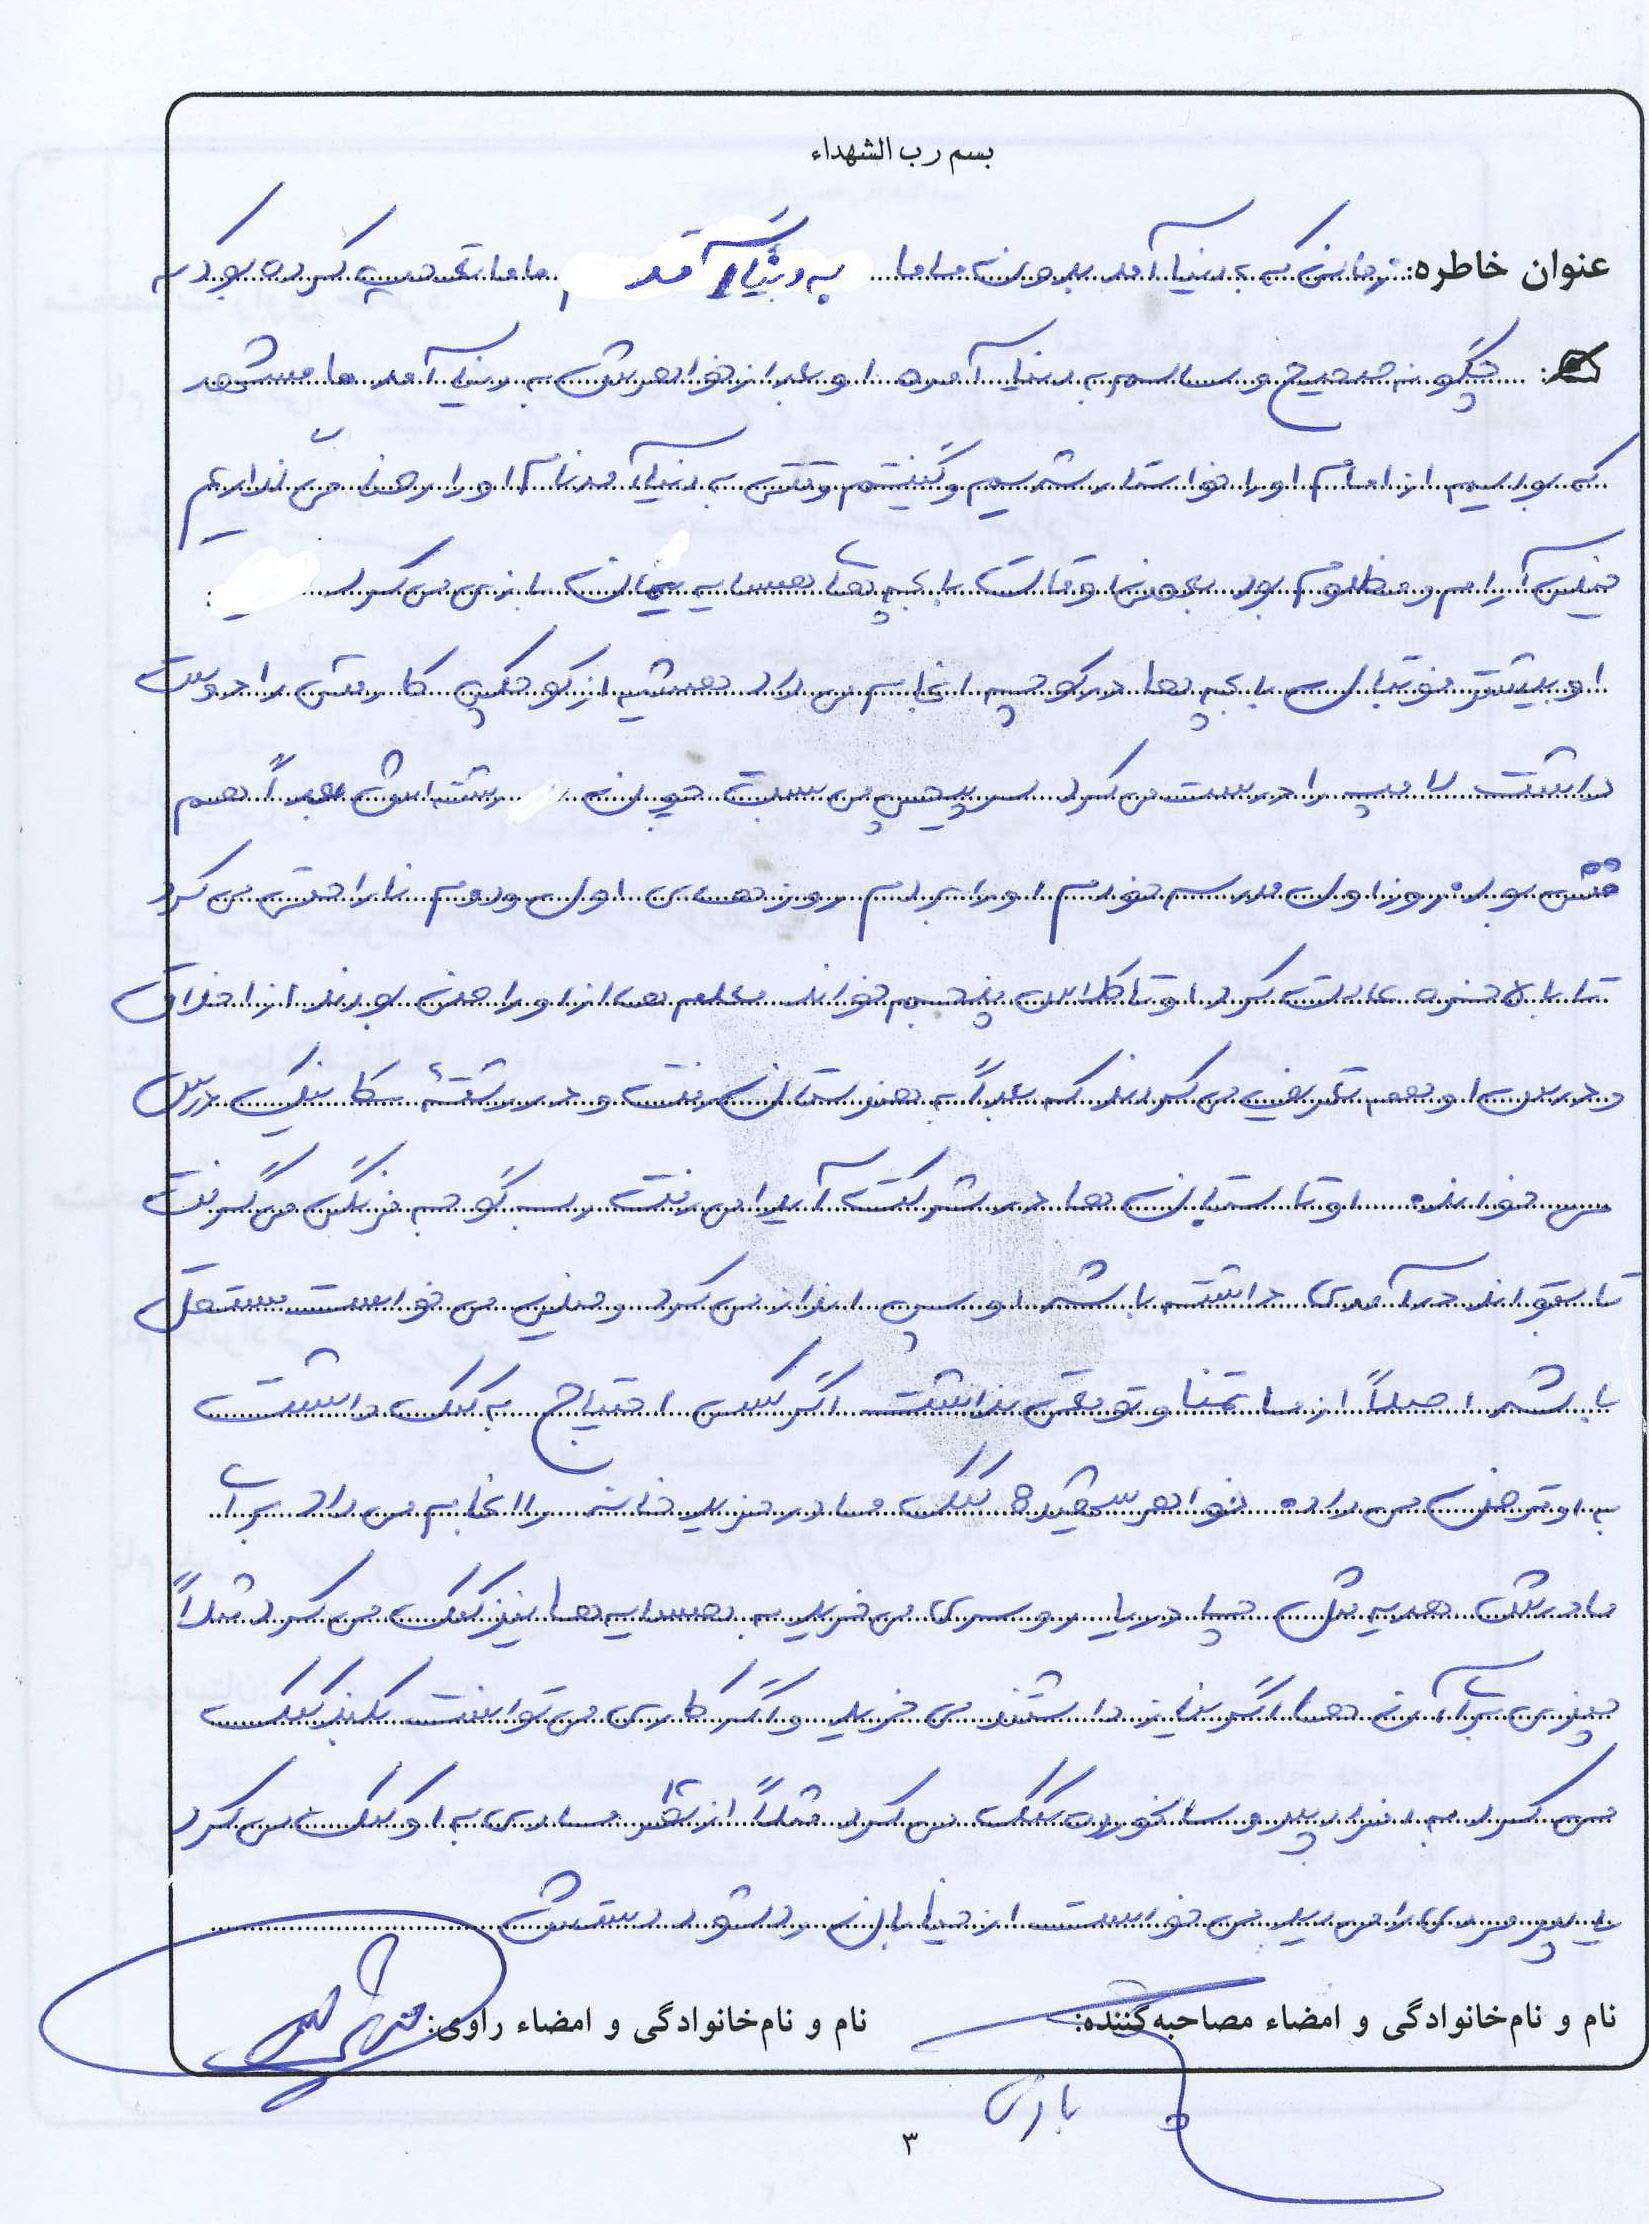 بسم رب الشهداء
عنوان خاطره: زمانی که به دنیا آمد بدون ماما به دنیا آمد ماما تعجب کرده بود که
چگونه صحیح و سالم به دنیا آمده او بعد از خواهرش به دنیا آمد ما مشهد
که بودیم از امام او را خواستار شدیم و گفتیم وقتی به دنیا آمد نام او را رضا می گذاریم
خیلی آرام و مظلوم بود بعضی اوقات با بچه های همسایه یمان بازی می کرد
او بیشتر فوتبال با بچه ها در کوچه انجام می داد همیشه از کوچکی کار فنی را دوست
داشت لامپ را درست می کرد سرپیچ می بست چون رشته اش بعداً هم
فنی بود روز اول مدرسه خودم او را بردم روزهای اول و دوم ناراحتی می کرد
تا بالاخره عادت کرد او تا کلاس پنجم خواند معلم ها از او راضی بودند از اخلاق
و درس او هم تعریف می کردند که بعداً به هنرستان رفت و در رشته مکانیک درس
می خواند او تابستان ها در شرکت آیدا می رفت رب گوجه فرنگی می گرفت
تا بتواند درآمدی داشته باشد او پس انداز می کرد و خیلی می خواست مستقل
باشد اصلاً از ما تمنا و توقعی نداشت اگر کسی احتیاج به کمک داشت
به او قرض می داد خواهر کمک ما در خرید خانه را انجام می داد برای
مادرش هدیه مثل چادر یا روسری می خرید به همسایه ها نیز کمک می کرد مثلاً
چیزی برای آن ها اگر نیاز داشتند می خرید و اگر کاری می توانست بکند کمک
می کرد به افراد پیر و سالخورده کمک می کرد مثلاً از نظر مادی به او کمک می کرد
یا پیرمردی را می دید می خواست از خیابان رد شود دستش
نام و نام‌خانوادگی و امضاء مصاحبه‌کننده: نام و نام‌خانوادگی و امضاء راوی:
۳